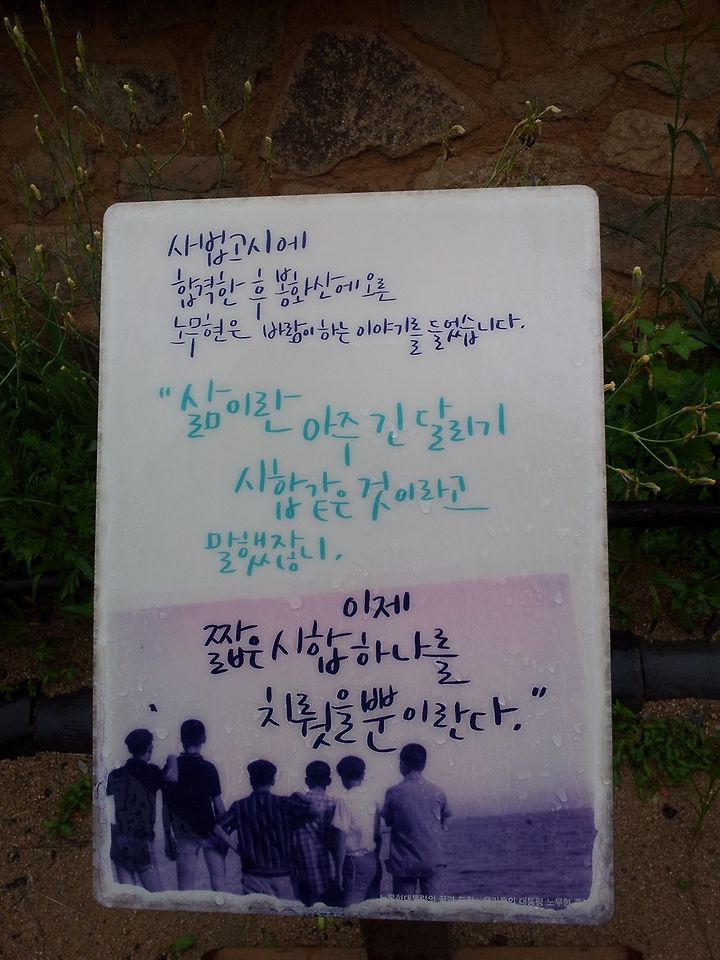 사법고시에
합격한 후 봉화산에 오른
노무현은 바람이 하는 이야기를 들었습니다.
"삶이란 아주 긴 달리기
시합같은 것이라고
말했잖니.
이제
짧은 시합 하나를
치뤘을 뿐이란다."
노무현대통령의 꿈과 도전 우리들의 대통령 노무현